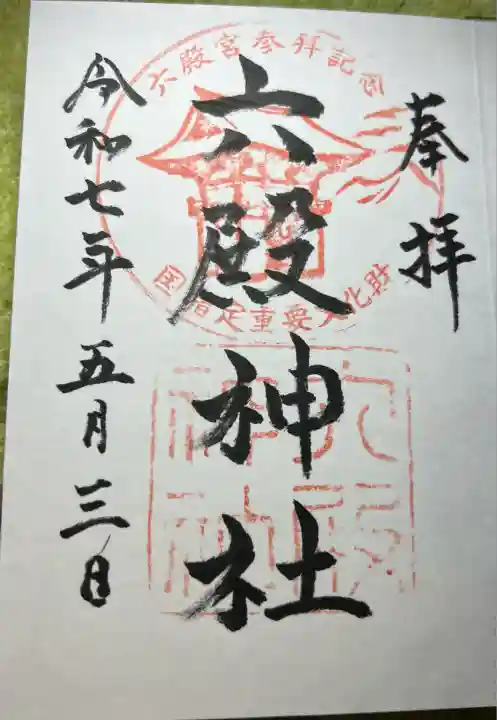 奉拝
六殿宮参拝記念
国指定重要文化財
六殿神社
令和七年五月三日